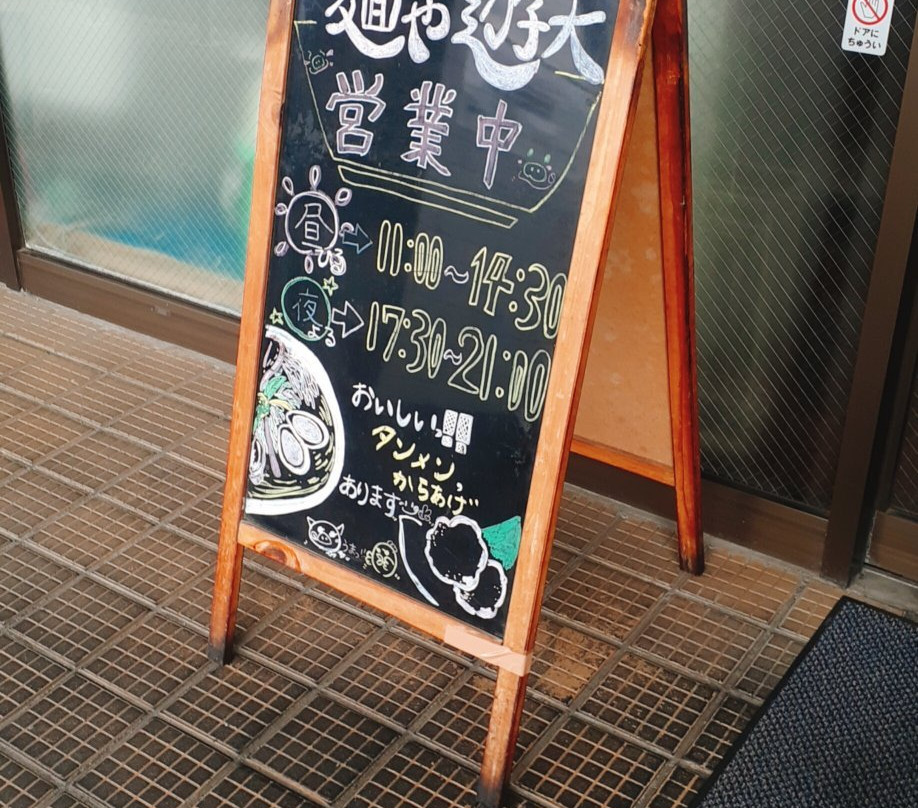 麺や遊大
営業中
昼 ひる 11:00~14:30
夜 よる 17:30~21:00
おいしい!!
タンメン、
からあげ
あります
うまっ
ドアに
ちゅうい